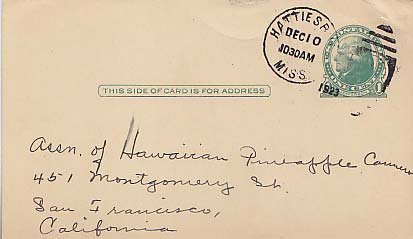 HATTIESB
DEC 10
1030AM
MISS.
1923
THIS SIDE OF CARD IS FOR ADDRESS
Assn. of Hawaiian Pineapple
451 Montgomery St.
San Francisco,
California